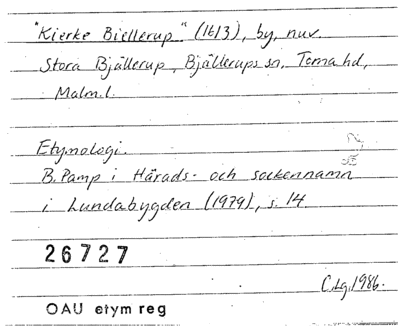 "Kierke Biellerup" (1613), by, nuv.
Stora Bjällerup, Bjällerups sn, Torna hd,
Malm.l.
Etymologi.
B. Pamp i Härads- och sockennamn
i Lundabygden (1979), s. 14
26727
C.Lg. 1986.
OAU etym reg